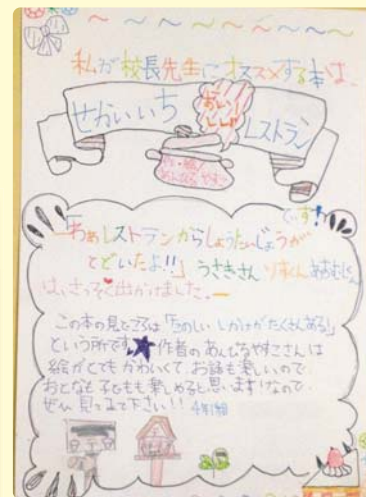 私が校長先生にオススメする本は、
せかいいち
おいしい
レストラン
作・絵/
あんびるやすこ
でっす!
「わぁレストランからしょうたいじょうが
とどいたよ!!」うさぎさん りすくん あおむしくん
は、さっそく出かけました。
この本の見どころは「たのしいしかけがたくさんある!」
という所です。★作者のあんびるやすこさんは
絵がとてもかわいくて、お話も楽しいので
おとなも子どもも楽しめると思います!なので
ぜひ見てみて下さい!! 4年1組